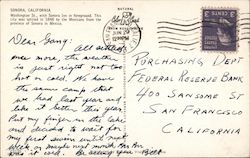 SONORA, CALIFORNIA
Washington St., with Sonora Inn in foreground. This
city was settled in 1848 by the Mexicans from the
province of Sonora in Mexico.
Dear Gang:
All settled
once more, the weather
is just right not too
hot or cold. We have
the same camp that
we had last year and
like it better this year.
Put my finger in the lake
and decided to wait for
my first swim until next
week or maybe next month
was it cold. Be seeing you. Bill
JUN 20
PM
PURCHASING DEPT
FEDERAL RESERVE BANK
400 SANSOME ST
SAN FRANCISCO
CALIFORNIA